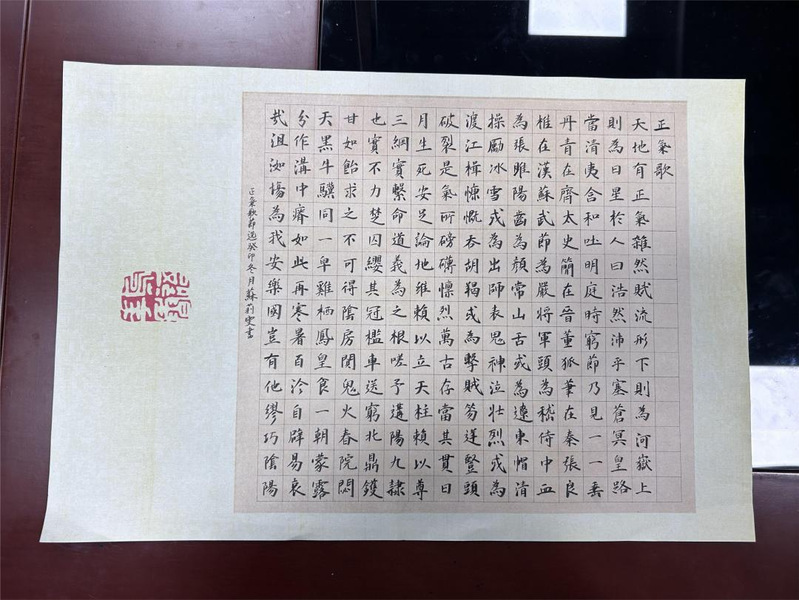 正氣歌
天地有正氣雜然賦流形下則為河嶽上
則為日星於人曰浩然沛乎塞蒼冥皇路
當清夷含和吐明庭時窮節乃見一一垂
丹青在齊太史簡在晉董狐筆在秦張良
椎在漢蘇武節為嚴將軍頭為稽侍中血
為張睢陽齒為顏常山舌或為遼東帽清
操勵冰雪或為出師表鬼神泣壯烈或為
渡江楫慷慨吞胡羯或為擊賊笏逆豎頭
破裂是氣所磅礴懍烈萬古存當其貫日
月生死安足論地維賴以立天柱賴以尊
三綱實繫命道義為之根嗟予遘陽九隸
也實不力楚囚纓其冠檻車送窮北鼎鑊
甘如飴求之不可得陰房闃鬼火春院閟
天黑牛驥同一皁雞栖鳳皇食一朝蒙露
分作溝中瘠如此再寒暑百沴自辟易哀
哉沮洳場為我安樂國豈有他繆巧陰陽
正氣歌節選癸卯冬月蘇莉雯書